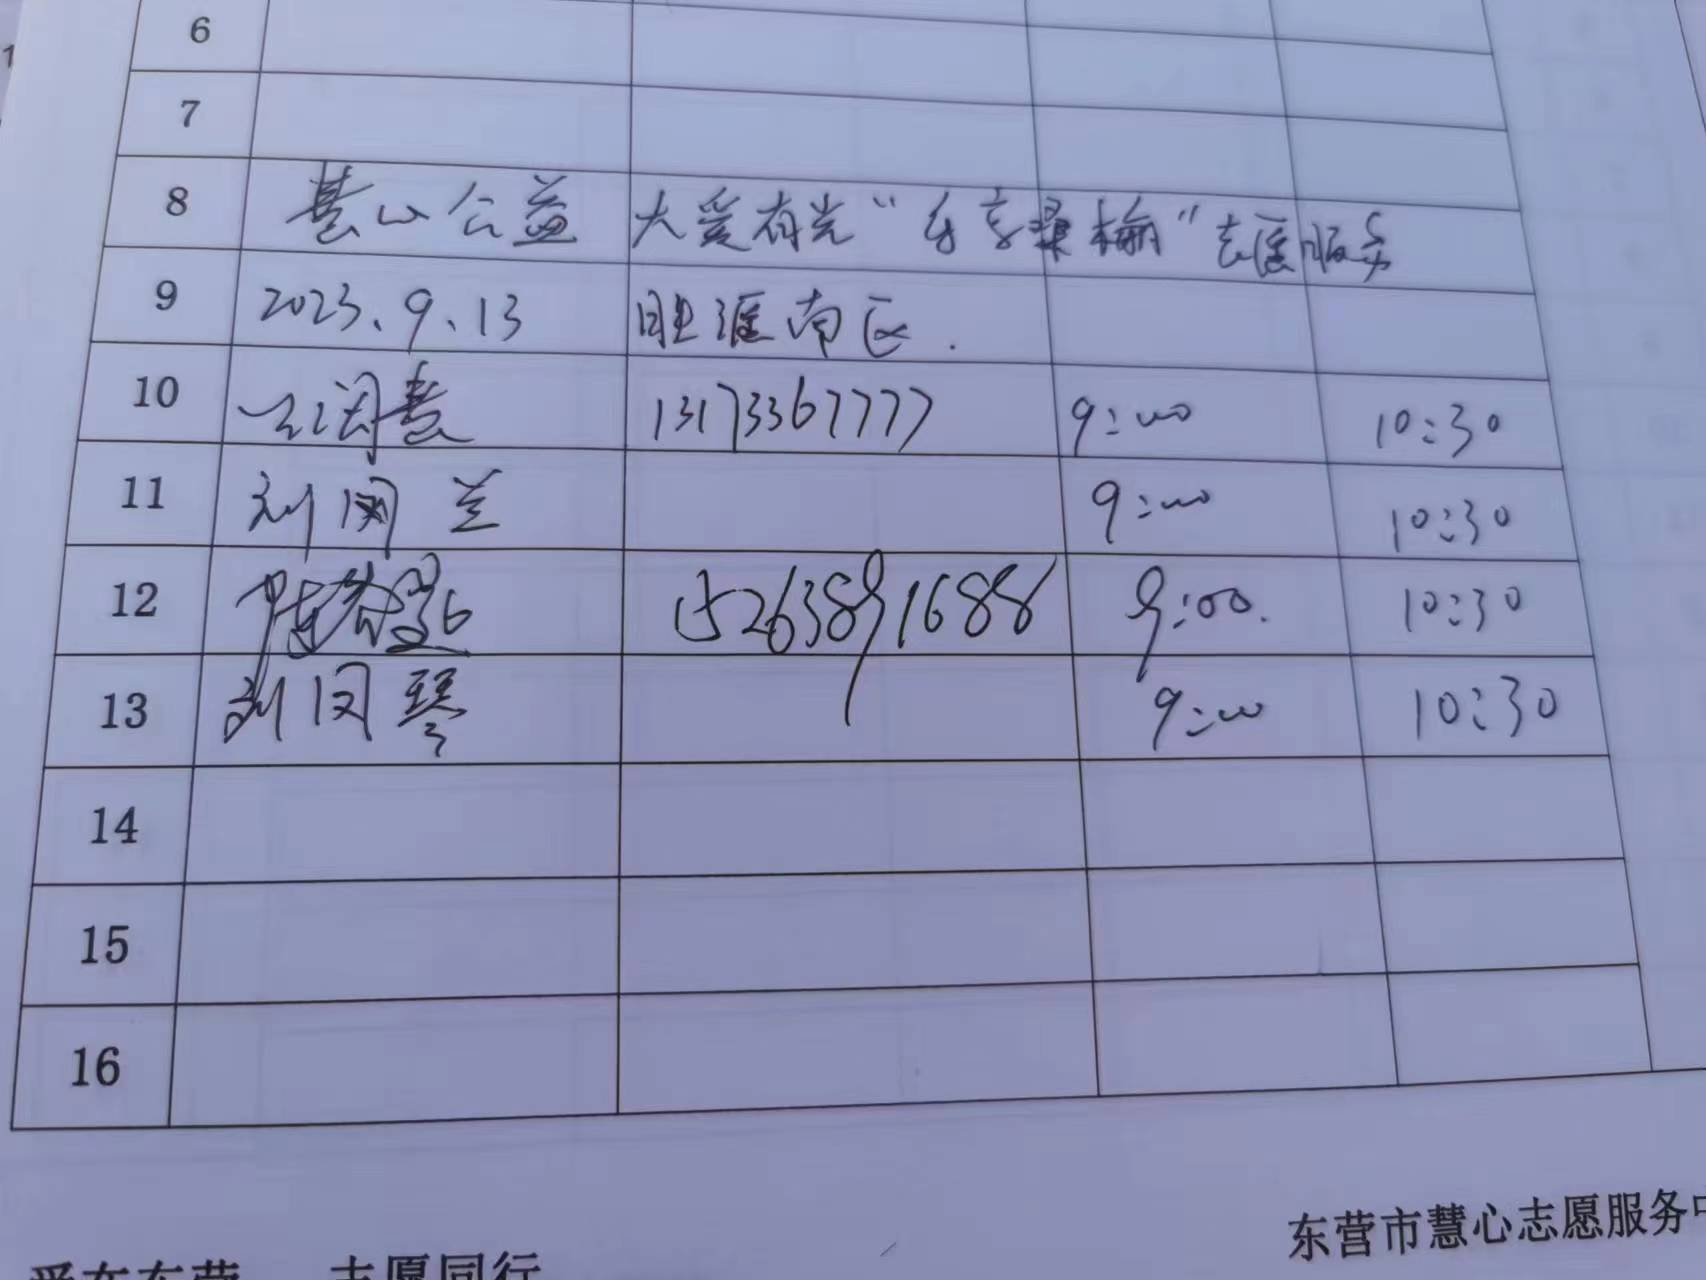 6
7
8 慧心公益 大爱有光“乐享桑榆”志愿服务
9 2023.9.13 胜滙南区.
10 慧 13173367777 9:00 10:30
11 刘风兰 9:00 10:30
12 陈 15263891688 9:00. 10:30
13 刘风琴 9:00 10:30
14
15
16
东营市慧心志愿服务中
爱在东营 志愿同行